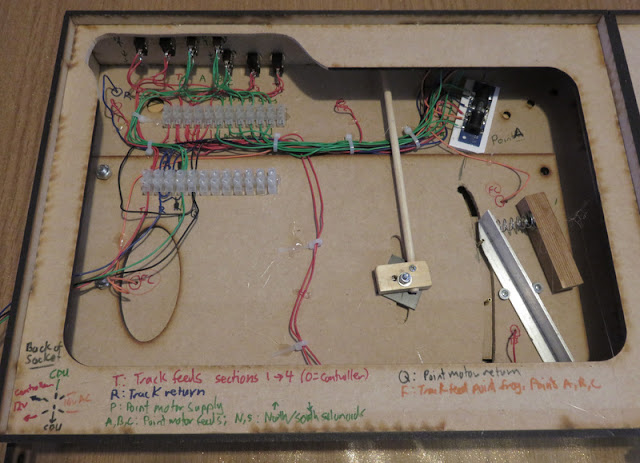 R
T
A
Point A
FC
FC
Back of
Socket
CDU
Controller
12v
CDU
T: Track feeds sections 1 → 4 (0=Controller)
R: Track return
P: Point motor supply
A, B, C: Point motor feeds; N, S: North/South solenoids
Q: Point motor return
F: Track feed point frog, Points A, B, C